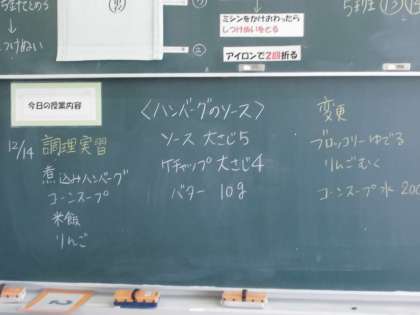 ミシンをかけおわったら
しつけぬいをとる
しつけぬい
②
アイロンで2回折る
今日の授業内容
12/14 調理実習
煮込みハンバーグ
コーンスープ
米飯
りんご
〈ハンバーグのソース〉
ソース 大さじ5
ケチャップ 大さじ4
バター 10g
変更
ブロッコリーゆでる
りんごむく
コーンスープ水 200